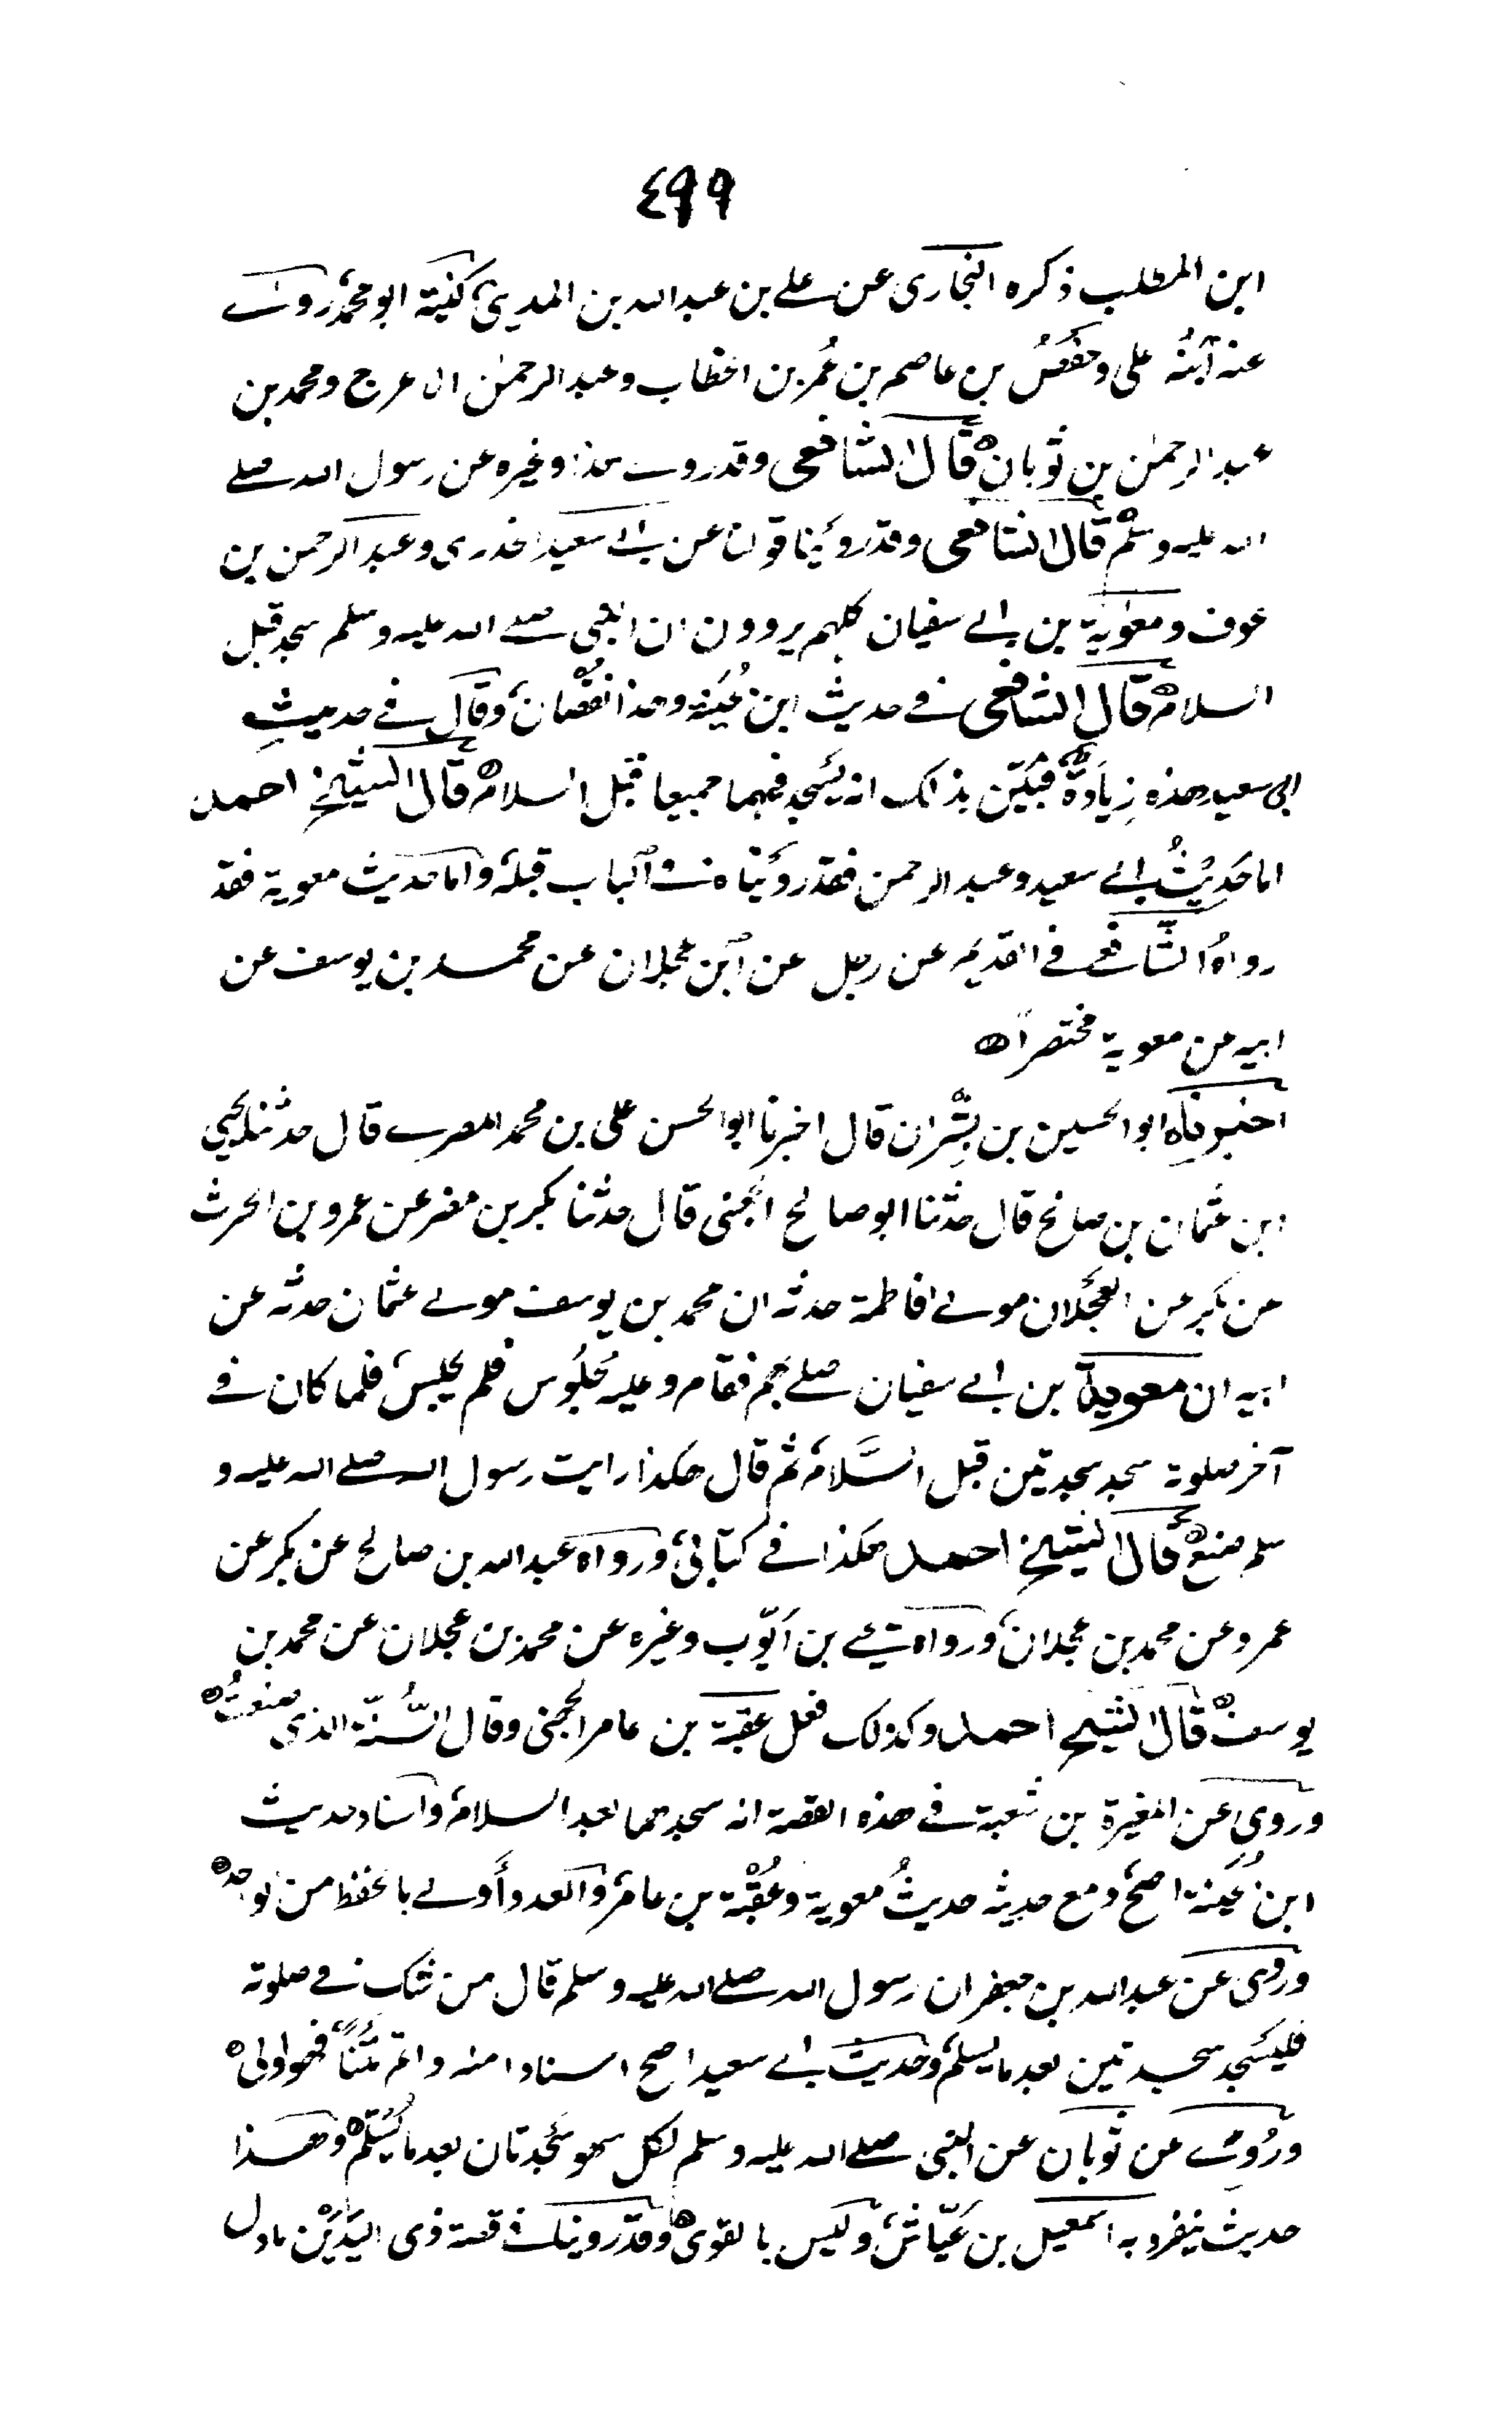 ٤٩٩
ابن المطلب ذكره البخارى عن على بن عبد الله بن المدينى كنيته ابو محمد روى
عنه ابنه على وحفص بن عاصم بن عمر بن الخطاب وعبد الرحمن الاعرج ومحمد بن
عبد الرحمن بن ثوبان قال الشافعى وقد روى هذا وغيره عن رسول الله صلے
الله عليه وسلم قال الشافعى وقد روينا قولنا عن ابى سعيد الخدرى وعبد الرحمن بن
عوف ومعوية بن ابى سفيان كلهم يروون ان النبى صلے الله عليه وسلم سجد قبل
السلام قال الشافعى فى حديث ابن بحينة وهذا نقصان وقال فى حديث
ابى سعيد هذه زيادة فبين بذلك انه يسجد فيهما جميعا قبل السلام قال الشيخ احمد
اما حديث ابى سعيد وعبد الرحمن فقد رويناه فى الباب قبله واما حديث معوية فقد
رواه الشافعى فى القديم عن رجل عن ابن عجلان عن محمد بن يوسف عن
ابيه عن معوية مختصرا
اخبرناه ابو الحسين بن بشران قال اخبرنا ابو الحسن على بن محمد المصرى قال حدثنا يحيى
ابن عثمان بن صالح قال حدثنا ابو صالح الجهنى قال حدثنا بكر بن مضر عن عمرو بن الحرث
عن بكير عن العجلان مولى فاطمة حدثه ان محمد بن يوسف مولى عثمان حدثه عن
ابيه ان معوية بن ابى سفيان صلے بهم فقام وعليه جلوس فلم يجلس فلما كان فى
آخر صلوته سجد سجدتين قبل السلام ثم قال هكذا رايت رسول الله صلے الله عليه و
سلم صنع قال الشيخ احمد هكذا فى كتابى ورواه عبد الله بن صالح عن بكر عن
عمرو عن محمد بن عجلان ورواه يحيى بن ايوب وغيره عن محمد بن عجلان عن محمد بن
يوسف قال الشيخ احمد وكذلك فعل عقبة بن عامر الجهنى وقال السنة الذى صنعت
وروى عن المغيرة بن شعبة فى هذه القصة انه سجدهما بعد السلام واسناد حديث
ابن بحينة اصح ومع حديثه حديث معوية وعقبة بن عامر والعدد أولى بالحفظ من
وروى عن عبد الله بن جعفر ان رسول الله صلے الله عليه وسلم قال من شك فى صلوته
فليسجد سجدتين بعد ما يسلم وحديث ابى سعيد اصح اسنادا منه واتم متنا فهو اولى
وروى عن ثوبان عن النبى صلے الله عليه وسلم لكل سهو سجدتان بعد ما يسلم وهذا
حديث ينفرد به اسمعيل بن عياش وليس بالقوى وقد روينا فى قصة ذى اليدين ما دل